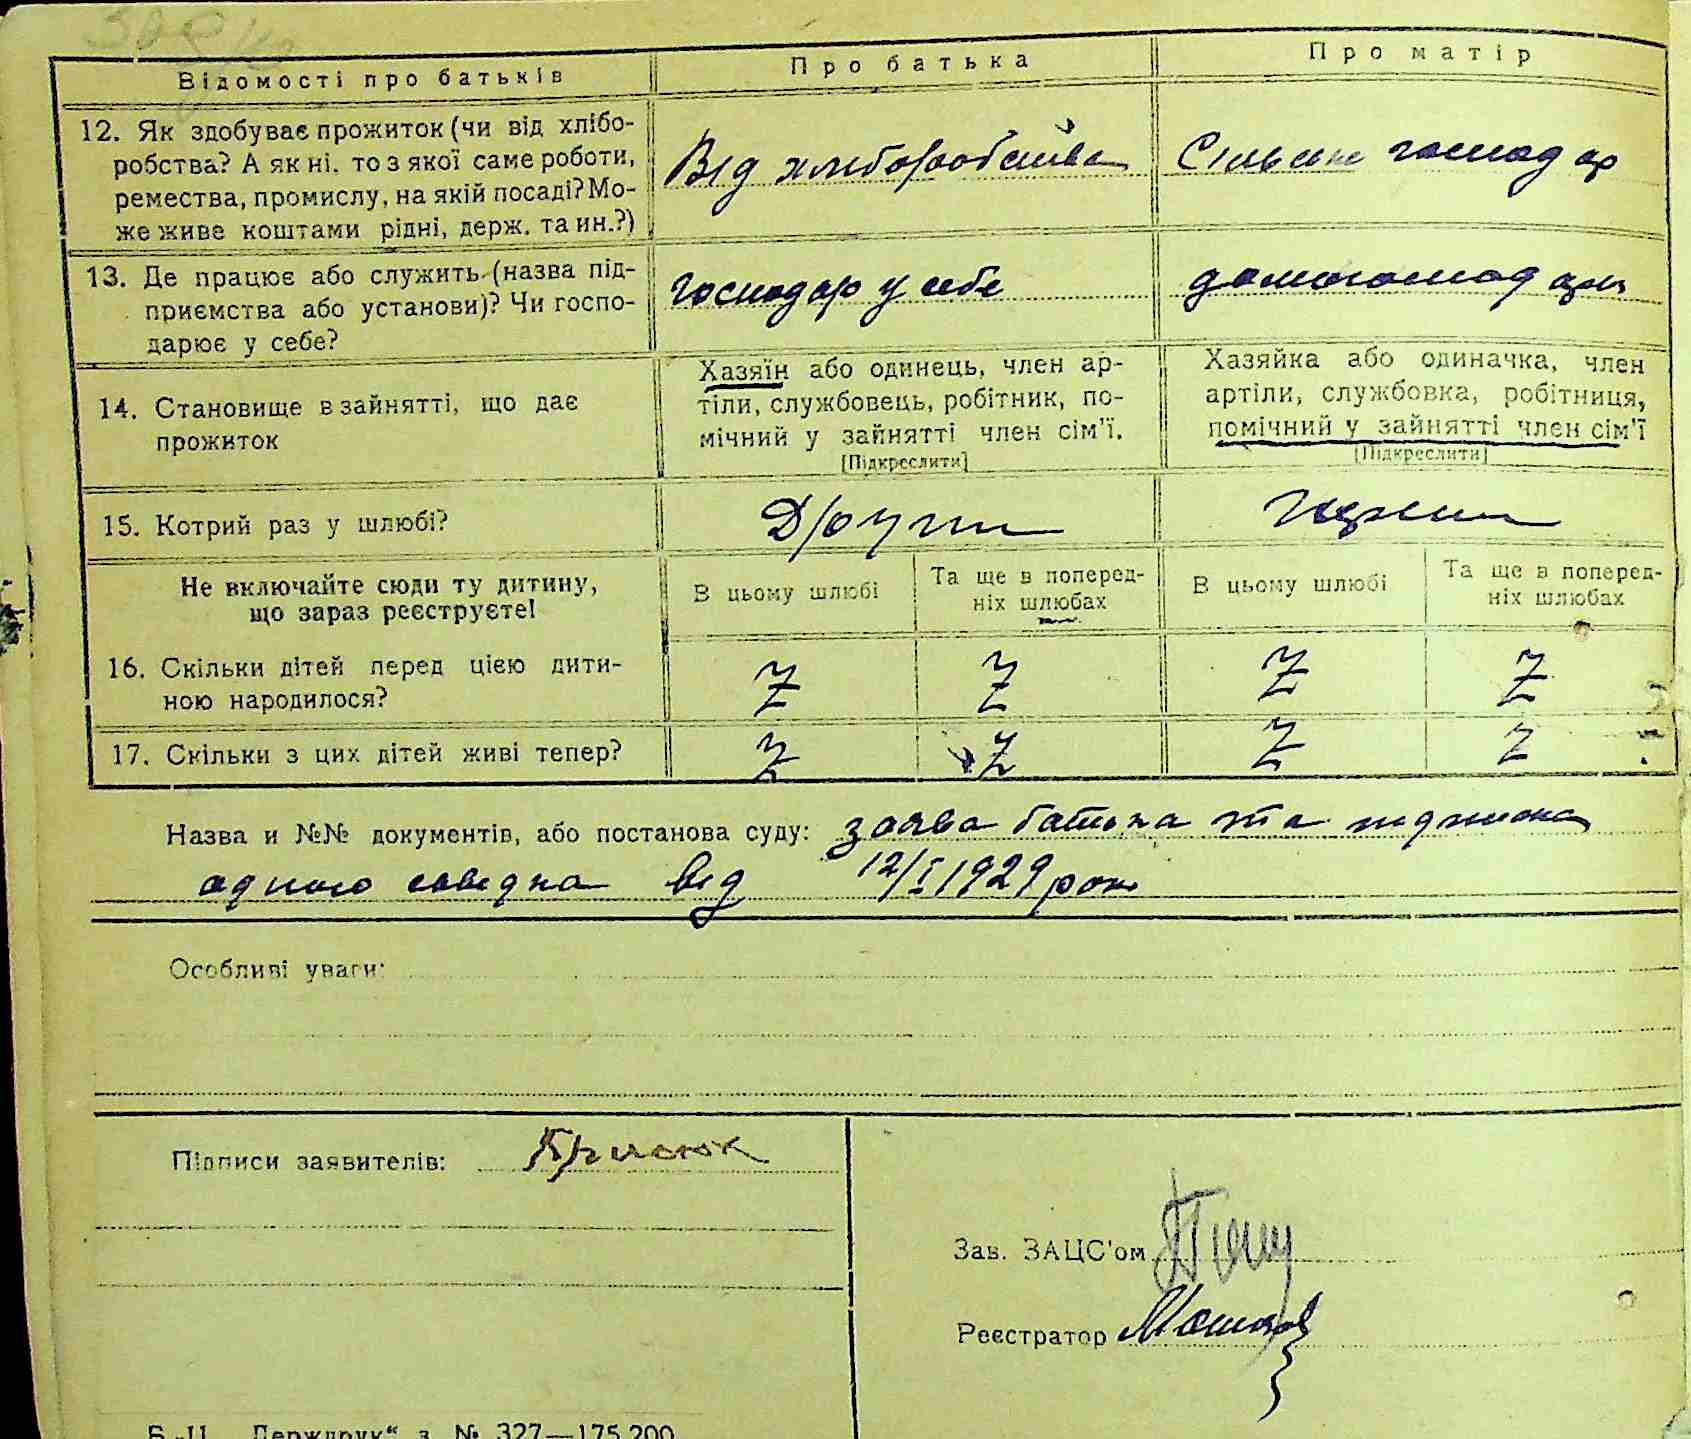 Відомості про батьків Про батька Про матір
12. Як здобуває прожиток (чи від хлібо-
робства? А як ні, то з якої саме роботи,
ремества, промислу, на якій посаді? Мо-
же живе коштами рідні, держ. та ин.?)
Від хліборобства
Сільське господар
13. Де працює або служить (назва під-
приємства або установи)? Чи госпо-
дарює у себе?
господар у себе
домогосподарка
14. Становище в зайнятті, що дає
прожиток
Хазяїн або одинець, член ар-
тіли, службовець, робітник, по-
мічний у зайнятті член сім'ї.
[Підкреслити]
Хазяйка або одиначка, член
артіли, службовка, робітниця,
помічний у зайнятті член сім'ї
[Підкреслити]
15. Котрий раз у шлюбі?
Другий
Не включайте сюди ту дитину,
що зараз реєструєте!
В цьому шлюбі
Та ще в поперед-
ніх шлюбах
В цьому шлюбі
Та ще в поперед-
ніх шлюбах
16. Скільки дітей перед цією дити-
ною народилося?
Z Z Z Z
17. Скільки з цих дітей живі тепер?
Z Z Z Z
Назва и №№ документів, або постанова суду: заява батька та
одного свідка від 12/I 1929 року
Особливі уваги:
Підписи заявителів:
Зав. ЗАЦС'ом
Реєстратор
Б.-Ц. „Держдрук“ з. № 327—175.200